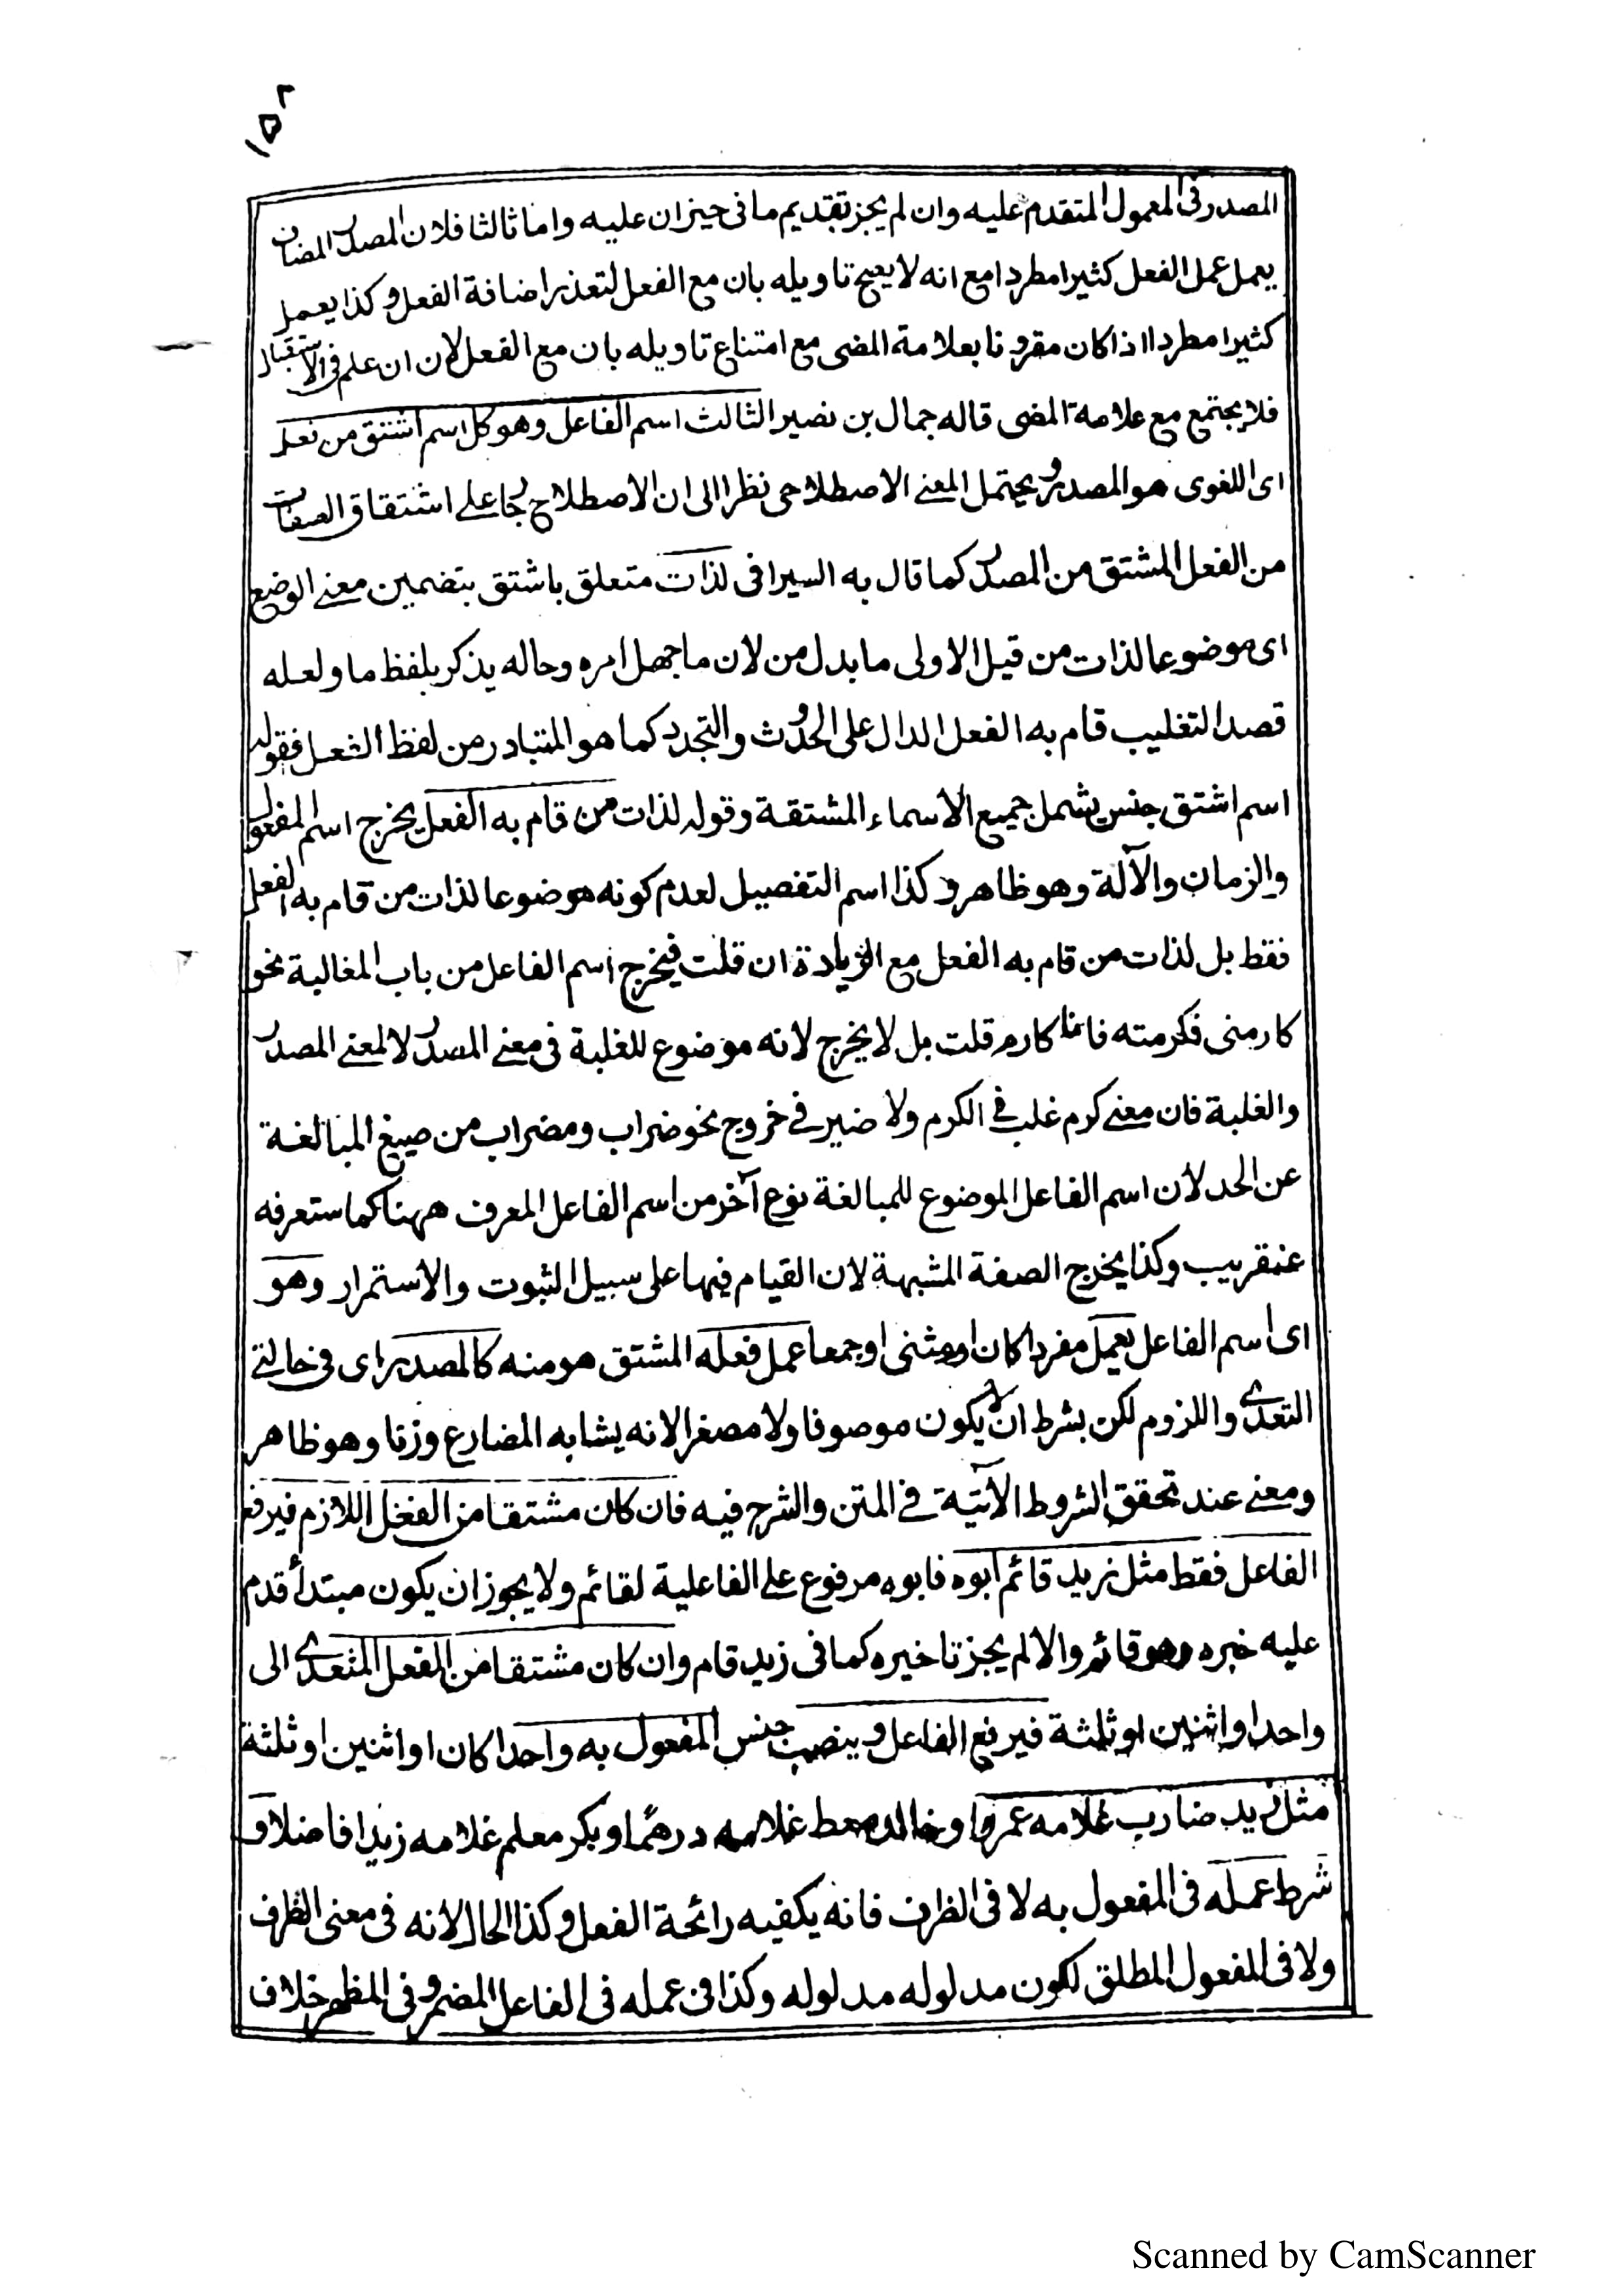 ١٥٢
المصدر فى المعمول المتقدم عليه وان لم يجز تقديم ما فى حيز ان عليه واما ثالثا فلان المصدر المضاف
يعمل عمل الفعل كثيرا مطردا مع انه لا يصح تاويله بان مع الفعل لتعذر اضافة الفعل وكذا يعمل
كثيرا مطردا اذا كان مقرونا بعلامة المضى مع امتناع تاويله بان مع الفعل لان ان علم فى الاستقبال
فلا يجتمع مع علامة المضى قاله جمال بن نصير الثالث اسم الفاعل وهو كل اسم اشتق من فعل
اى اللغوى هو المصدر ويحتمل المعنے الاصطلاحى نظرا الى ان الاصطلاح جاء علے اشتقاق الصفات
من الفعل المشتق من المصدر كما قال به السيرافى لذات متعلق باشتق بتضمين معنے الوضع
اى موضوعا لذات من قيل الاولى ما بدل من لان ما جهل امره وحاله يذكر بلفظ ما ولعله
قصد التغليب قام به الفعل الدال على الحدوث والتجدد كما هو المتبادر من لفظ الفعل فقوله
اسم اشتق جنس يشمل جميع الاسماء المشتقة وقوله لذات من قام به الفعل يخرج اسم المفعول
والزمان والآلة وهو ظاهر وكذا اسم التفضيل لعدم كونه موضوعا لذات من قام به الفعل
فقط بل لذات من قام به الفعل مع الزيادة ان قلت فيخرج اسم الفاعل من باب المغالبة نحو
كارمنى فكرمته فانا كارم قلت بل لا يخرج لانه موضوع للغلبة فى معنے المصدر لا لمعنے المصدر
والغلبة فان معنے كرم غلب فے الكرم ولا ضير فے خروج نحو ضراب ومضراب من صيغ المبالغة
عن الحد لأن اسم الفاعل الموضوع للمبالغة نوع آخر من اسم الفاعل المعرف ههنا كما ستعرفه
عنقريب وكذا يخرج الصفة المشبهة لان القيام فيها على سبيل الثبوت والاستمرار وهو
اى اسم الفاعل يعمل مفردا كان او مثنى او جمعا عمل فعله المشتق هو منه كالمصدر اى فى حالتے
التعدے واللزوم لكن بشرط ان لا يكون موصوفا ولا مصغرا لانه يشابه المضارع وزنا وهو ظاهر
ومعنے عند تحقق الشروط الآتية فے المتن والشرح فيه فان كان مشتقا من الفعل اللازم فيرفع
الفاعل فقط مثل زيد قائم ابوه فابوه مرفوع على الفاعلية لقائم ولا يجوز ان يكون مبتدأ قدم
عليه خبره وهو قائم والا لم يجز تاخيره كما فى زيد قام وان كان مشتقا من الفعل المتعدے الى
واحد او اثنين او ثلثة فيرفع الفاعل وينصب جنس المفعول به واحدا كان او اثنين او ثلثة
مثل زيد ضارب غلامه عمروا وخالد معط غلامه درهما وبكر معلم غلامه زيدا فاضلا و
شرط عمله فى المفعول به لا فى الظرف فانه يكفيه رائحة الفعل وكذا الحال لانه فى معنى الظرف
ولا فى المفعول المطلق لكون مدلوله مدلوله وكذا فى عمله فى الفاعل المضمر وفى المظهر خلاف
Scanned by CamScanner